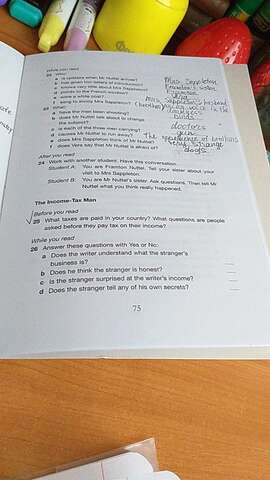 While you read
22 Who:
a is upstairs when Mr Nuttel arrives?
b has given him letters of introduction?
c knows very little about Mrs Sappleton?
d points to the French window?
e wore a white coat?
f sang to annoy Mrs Sappleton?
23 What:
a have the men been shooting?
b does Mr Nuttel talk about to change
the subject?
c is each of the three men carrying?
d causes Mr Nuttel to run away?
e does Mrs Sappleton think of Mr Nuttel?
f does Vera say that Mr Nuttel is afraid of?
Mrs Sappleton
birds
doctors
gun
dogs
After you read
24 Work with another student. Have this conversation.
Student A: You are Framton Nuttel. Tell your sister about your
visit to Mrs Sappleton.
Student B: You are Mr Nuttel's sister. Ask questions. Then tell Mr
Nuttel what you think really happened.
The Income-Tax Man
Before you read
25 What taxes are paid in your country? What questions are people
asked before they pay tax on their income?
While you read
26 Answer these questions with Yes or No:
a Does the writer understand what the stranger's
business is?
b Does he think the stranger is honest?
c Is the stranger surprised at the writer's income?
d Does the stranger tell any of his own secrets?
75